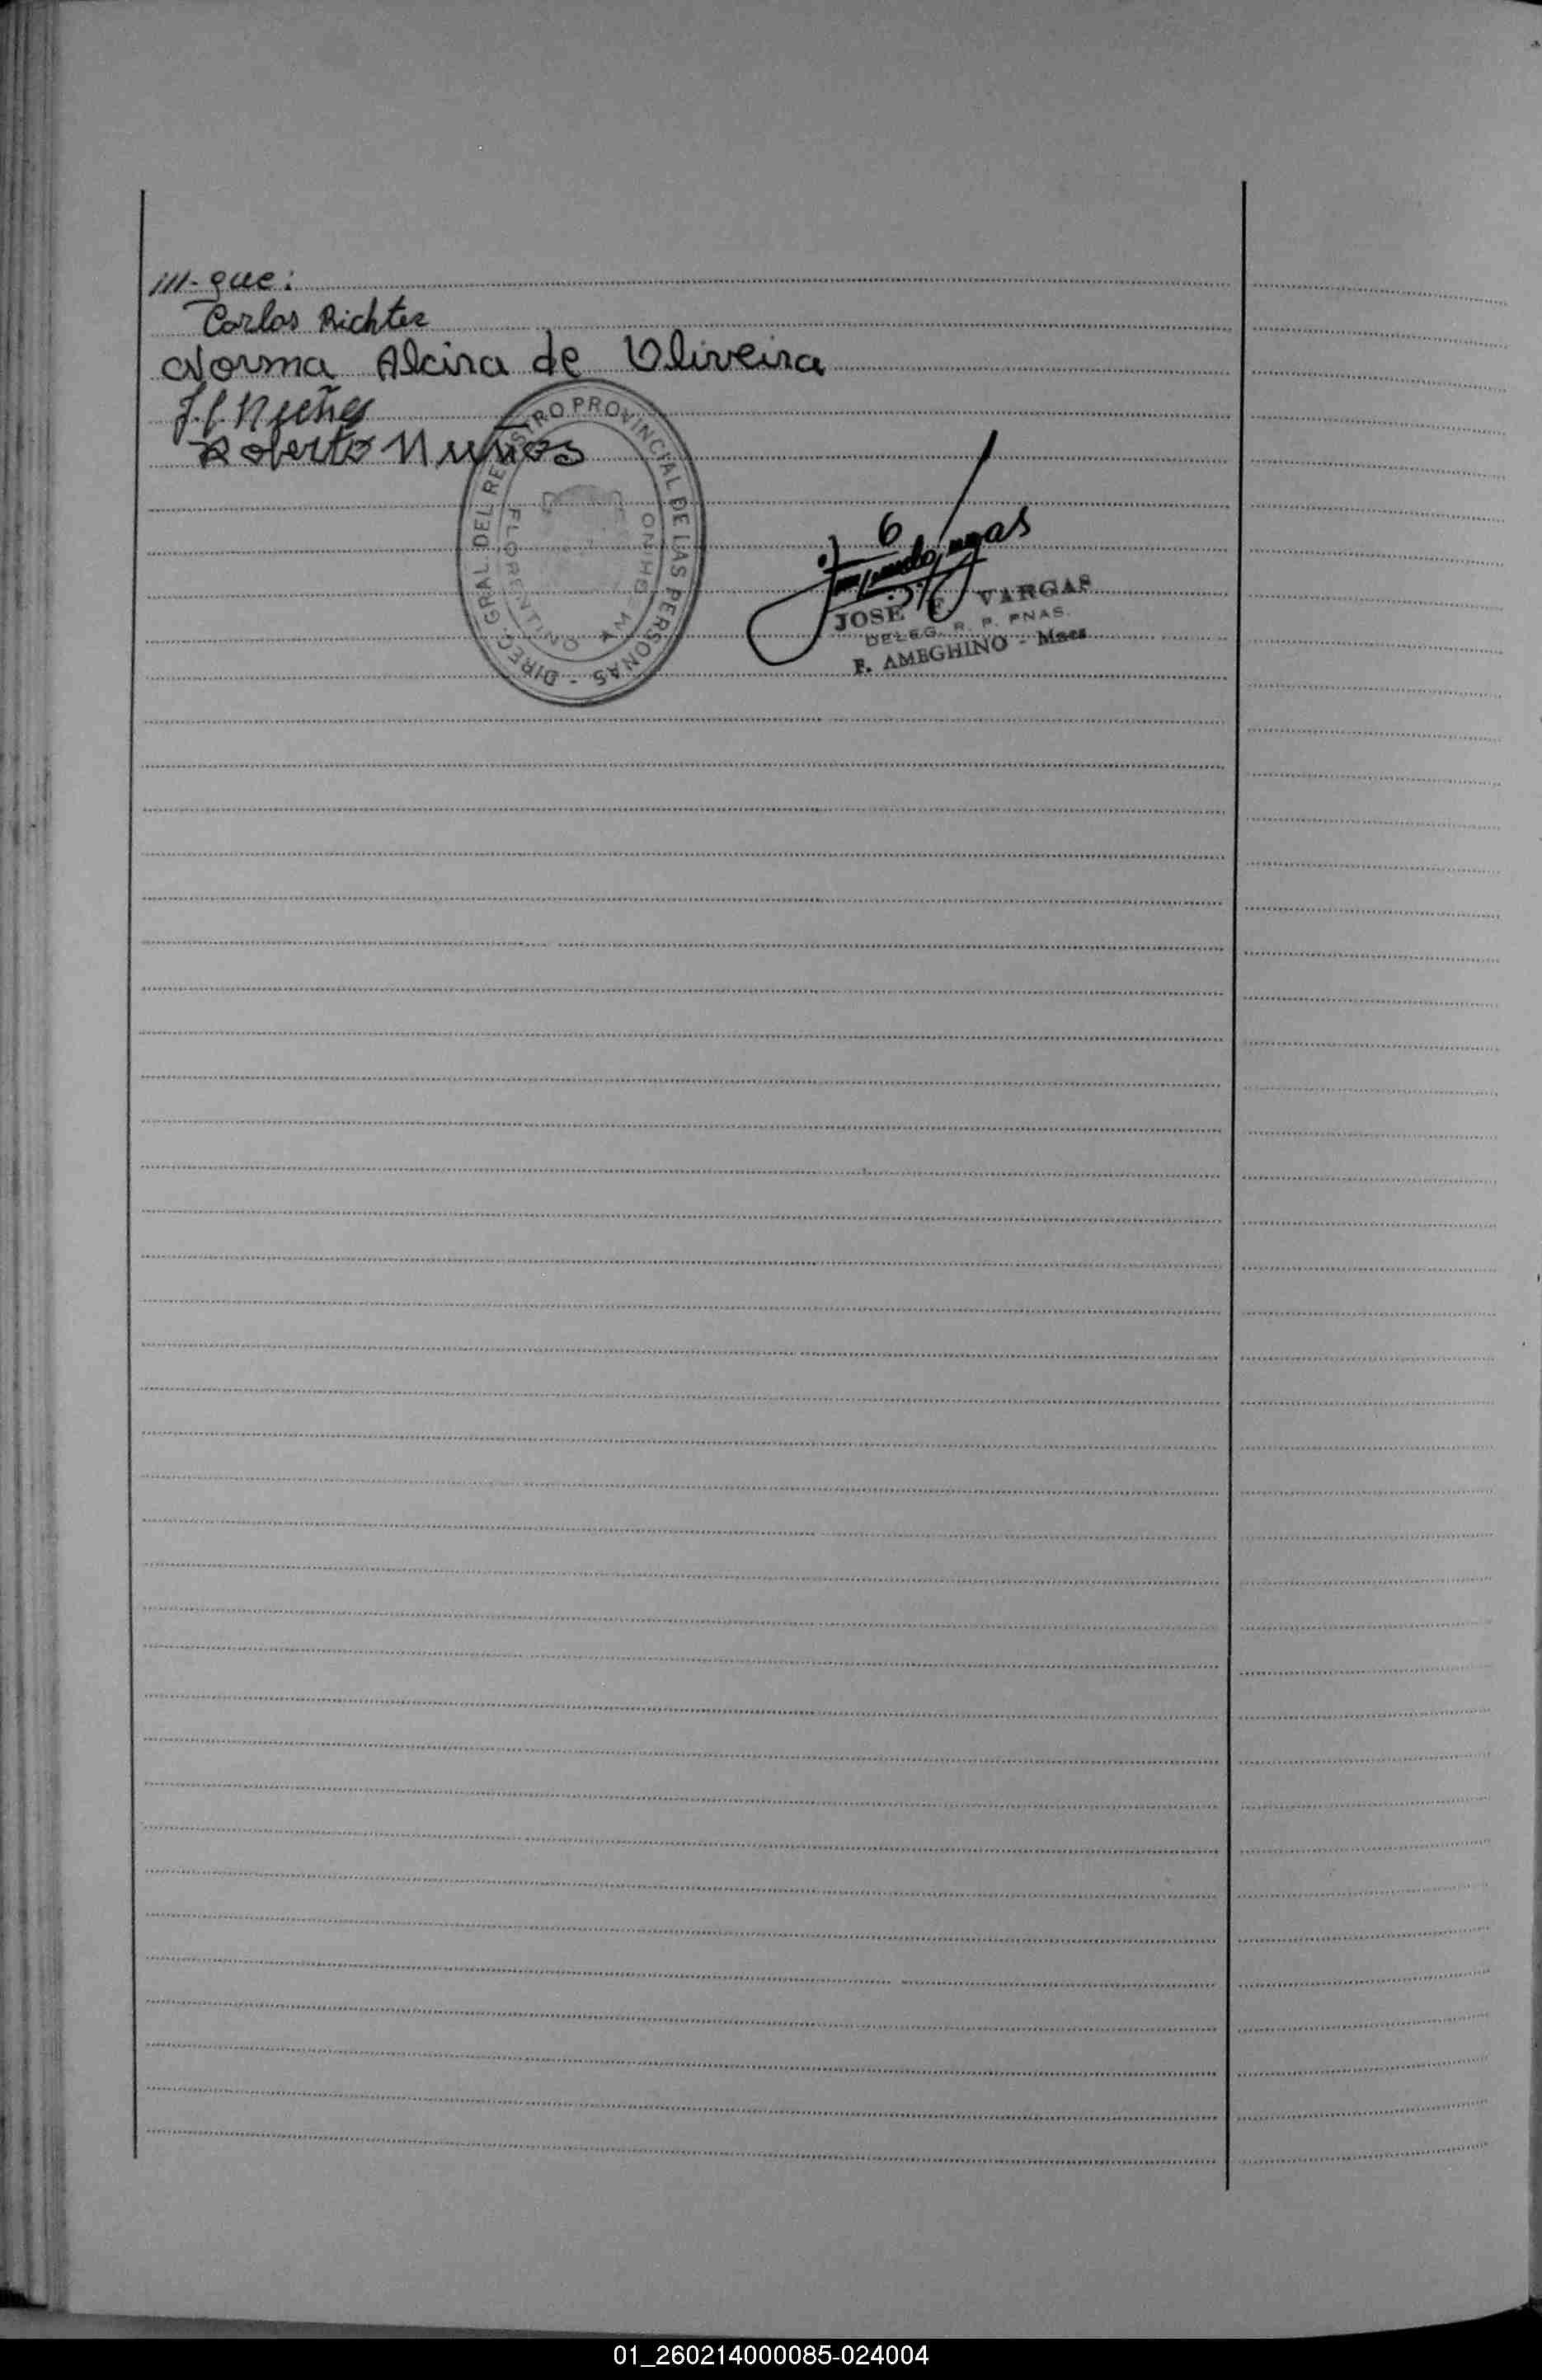 ///- que:
Carlos Richter
Norma Alcira de Oliveira
Roberto Nuños
DIREC. GRAL. DEL REGISTRO PROVINCIAL DE LAS PERSONAS -
FLORENTINO AMEGHINO
JOSE F. VARGAS
DELEG. R. P. PNAS.
F. AMEGHINO - Mnes
01_260214000085-024004